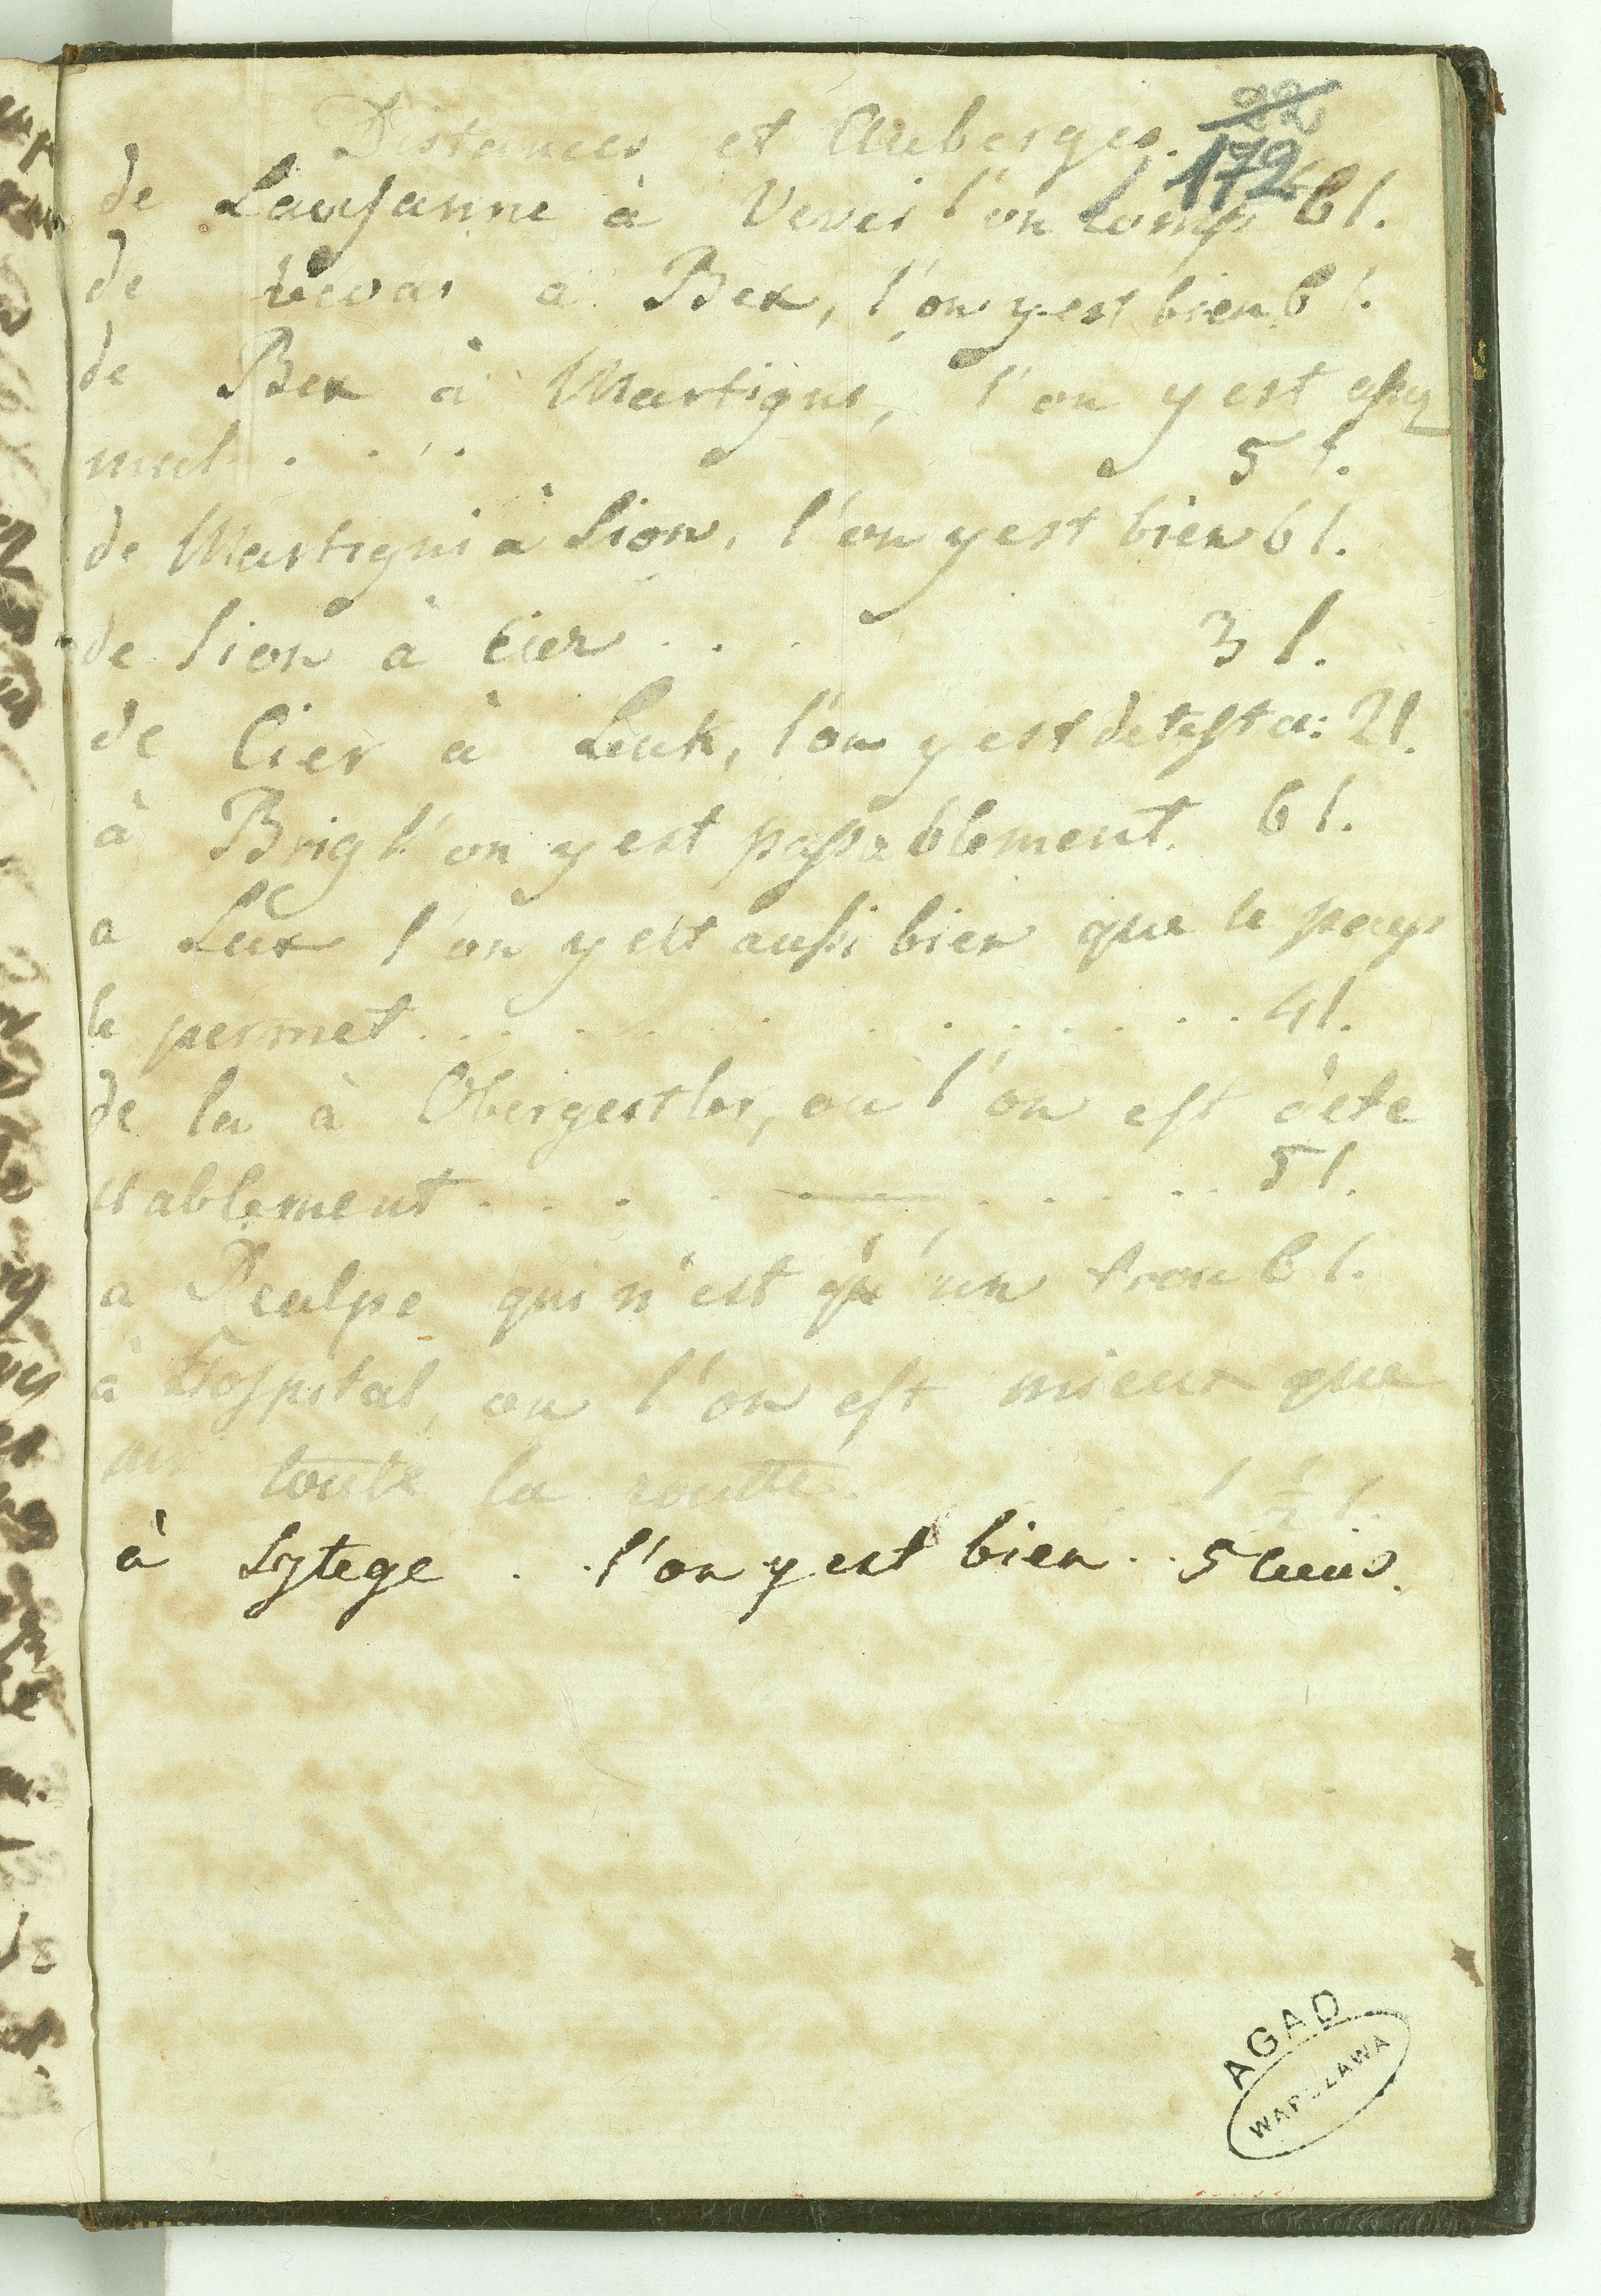 22
172
Distances et Auberges.
de Lausanne à Vevei l'on comp 6 l.
de Vevai a Bex, l'on y est bien 6 l.
de Bex à Martigni, l'on y est assez
mal . . . . 5 l.
de Martigni à Sion, l'on y est bien 6 l.
de Sion à Cier . . . 3 l.
de Cier à Leuk, l'on y est detesta: 2 l.
à Brig l'on y est passablement. 6 l.
a Lax l'on y est aussi bien que le pays
le permet . . . . . . . . . . . 4 l.
de la à Obergestler, ou l'on est dete
stablement . . . . . . . . 5 l.
a Realpe qui n'est qu'un trou 6 l.
à Hospital, ou l'on est mieux que
sur toute la routte. . . . 1 1/2 l.
à Sytege . . l'on y est bien . . 5 lieus.
AGAD
WARSZAWA